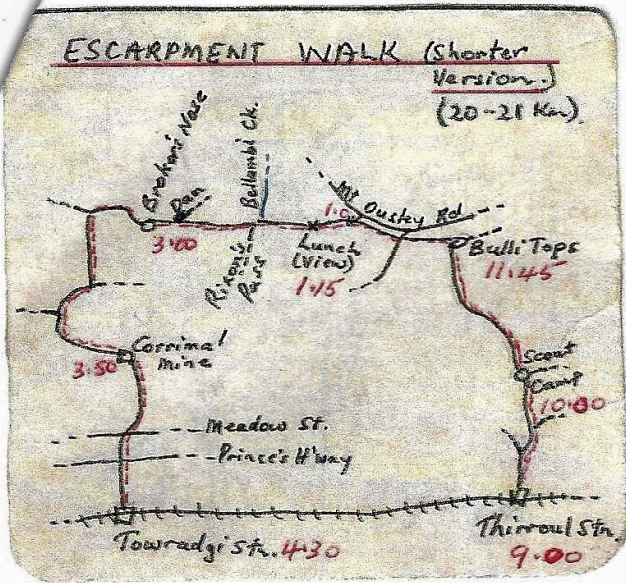 ESCARPMENT WALK (Shorter
Version.)
(20-21 Km)
Brokers Nose
Dam
Bellambi Ck.
Mt Ousley Rd
1.0
3.00
Rixon's
Pass
Lunch
(View)
1.15
Bulli Tops
11.45
Corrimal
Mine
3.50
Scout
Camp
10.00
Meadow St.
Prince's H'way
Towradgi Stn. 4.30
Thirroul Stn.
9.00